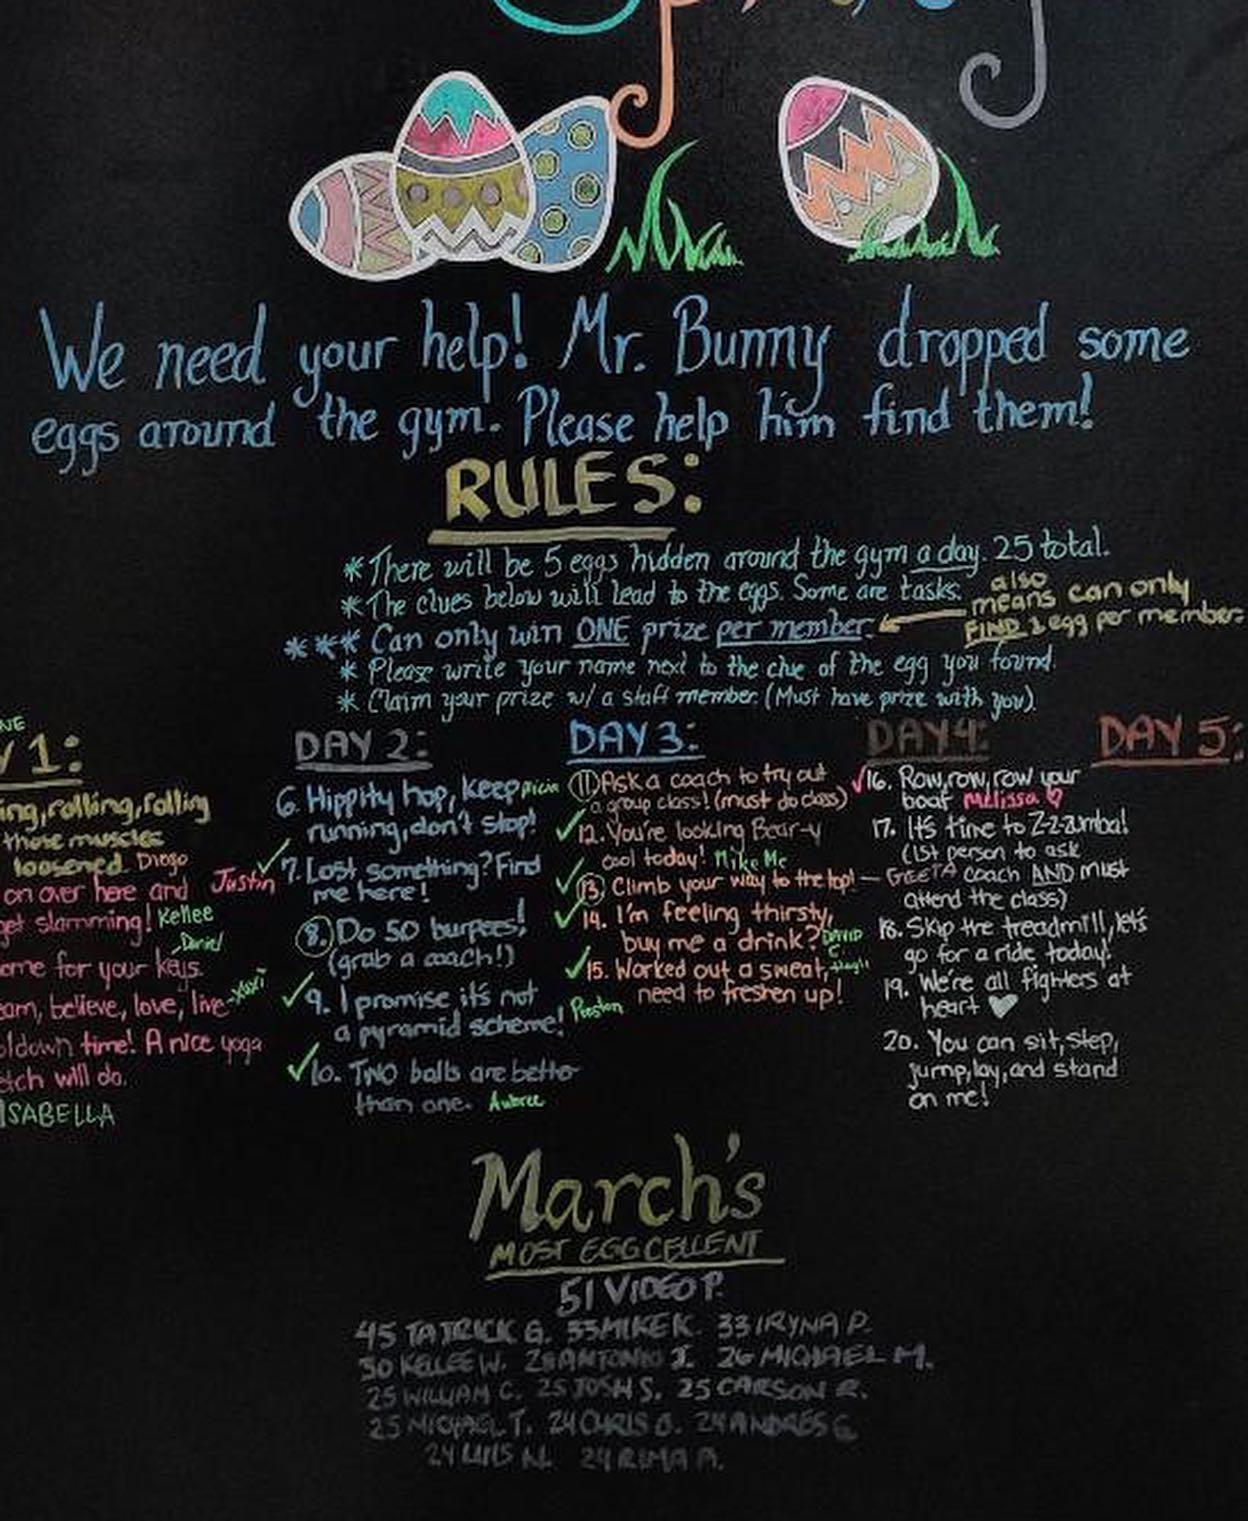 We need your help! Mr. Bunny dropped some
eggs around the gym. Please help him find them!
RULES:
* There will be 5 eggs hidden around the gym a day. 25 total.
* The clues below will lead to the eggs. Some are tasks.
*** Can only win ONE prize per member.
also
means can only
FIND 1 egg per member.
* Please write your name next to the clue of the egg you found.
* Claim your prize w/ a staff member. (Must have prize with you).
1:
rolling, rolling
those muscles
loosened. Diego
on over here and Justin
get slamming! Kellee
Daniel
for your keys.
believe, love, live
time! A nice yoga
will do.
ISABELLA
DAY 2:
6. Hippity hop, keep
running, don't stop!
7. Lost something? Find
me here!
8. Do 50 burpees!
(grab a coach!)
9. I promise it's not
a pyramid scheme! Preston
10. TWO balls are better
than one. Aubree
DAY 3:
11. Ask a coach to try out
a group class! (must do class)
12. You're looking Bear-y
cool today! Mike Mc
13. Climb your way to the top!
14. I'm feeling thirsty,
buy me a drink? DAVID C
15. Worked out a sweat,
need to freshen up!
DAY 4:
16. Row, row, row your
boat Melissa
17. It's time to Z-Z-Zumba!
(1st person to ask
GFETA coach AND must
attend the class)
18. Skip the treadmill, let's
go for a ride today!
19. We're all fighters at
heart
20. You can sit, step,
jump, lay, and stand
on me!
DAY 5:
March's
MOST EGGCELLENT
51 VIDEO P.
45 TATRICK G. 33 MIKE K. 33 IRYNA P.
30 KELLEE W. 28 ANTONIO J. 26 MICHAEL M.
25 WILLIAM C. 25 JOSH S. 25 CARSON R.
25 MICHAEL T. 24 CHRIS O. 24 ANDRES G.
24 LUIS N. 24 RIMA A.